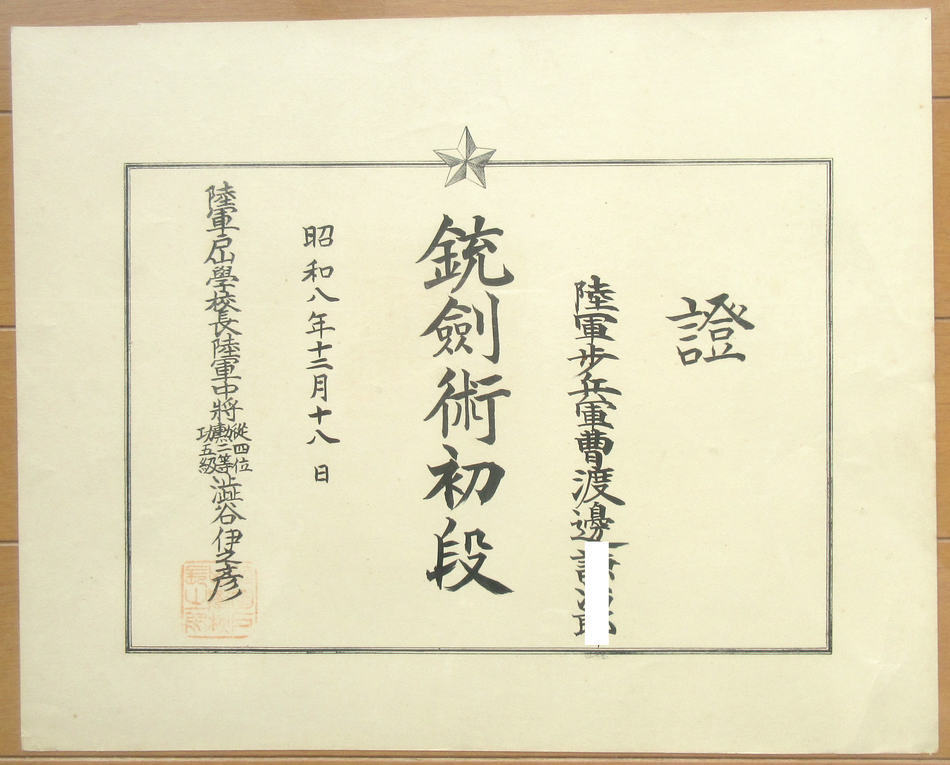 證
陸軍步兵軍曹渡邊
銃劍術初段
昭和八年十二月十八日
陸軍戸山學校長陸軍中將從四位勳二等功五級澁谷伊之彦